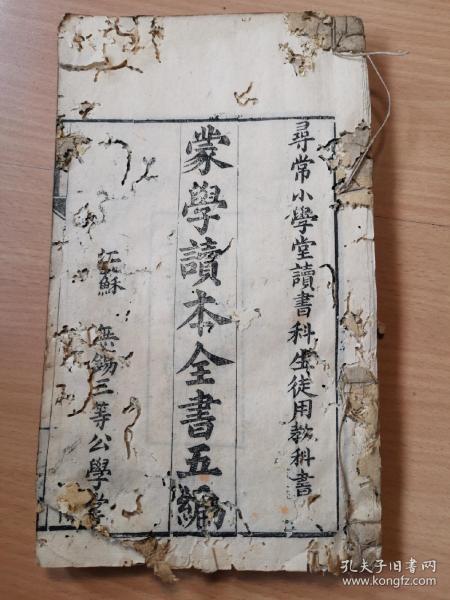 尋常小學堂讀書科生徒用教科書
蒙學讀本全書五編
江蘇 無錫三等公學堂
孔夫子旧书网
www.kongfz.com